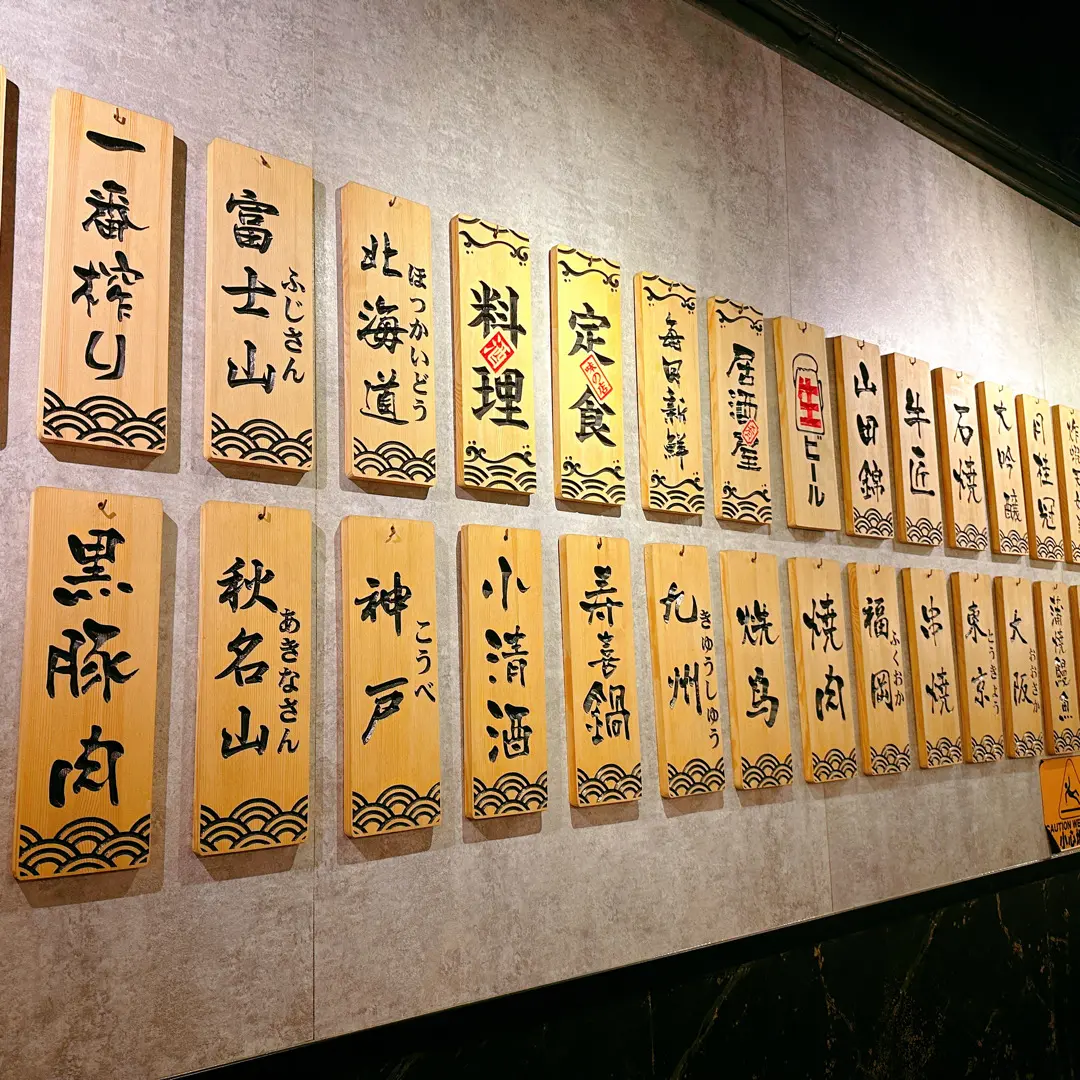 一番搾り
富士山
ふじさん
北海道
ほつかいどう
料理
定食
味の店
毎日新鮮
居酒屋
生ビール
山田錦
牛匠
石焼
大吟醸
月桂冠
黒豚肉
秋名山
あきなさん
神戸
こうべ
小清酒
寿喜鍋
九州
きゆうしゆう
焼鳥
焼肉
福岡
ふくおか
串焼
東京
とうきよう
大阪
おおさか
蒲焼鰻魚
CAUTION WE
小心